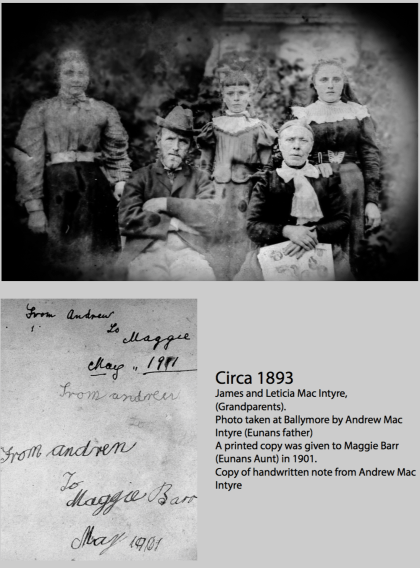 From Andrew
to
Maggie
May ,,
From andrew
From andrew
To
Maggie Barr
May 1901
Circa 1893
James and Leticia Mac Intyre,
(Grandparents).
Photo taken at Ballymore by Andrew Mac
Intyre (Eunans father)
A printed copy was given to Maggie Barr
(Eunans Aunt) in 1901.
Copy of handwritten note from Andrew Mac
Intyre